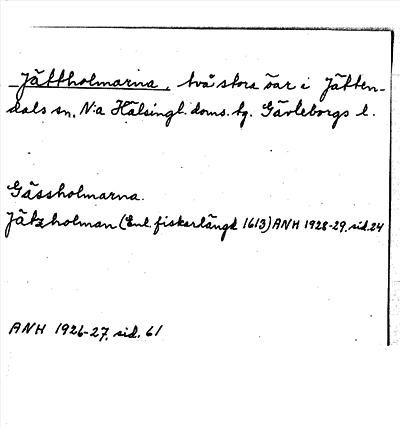 Jättholmarna, två stora öar i Jätten-
dals sn, N:a Hälsingl. doms. tg. Gävleborgs l.
Gässholmarna.
Jätzholman (Enl. fiskarlängd 1613) ANH 1928-29, sid. 24
ANH 1926-27, sid. 61